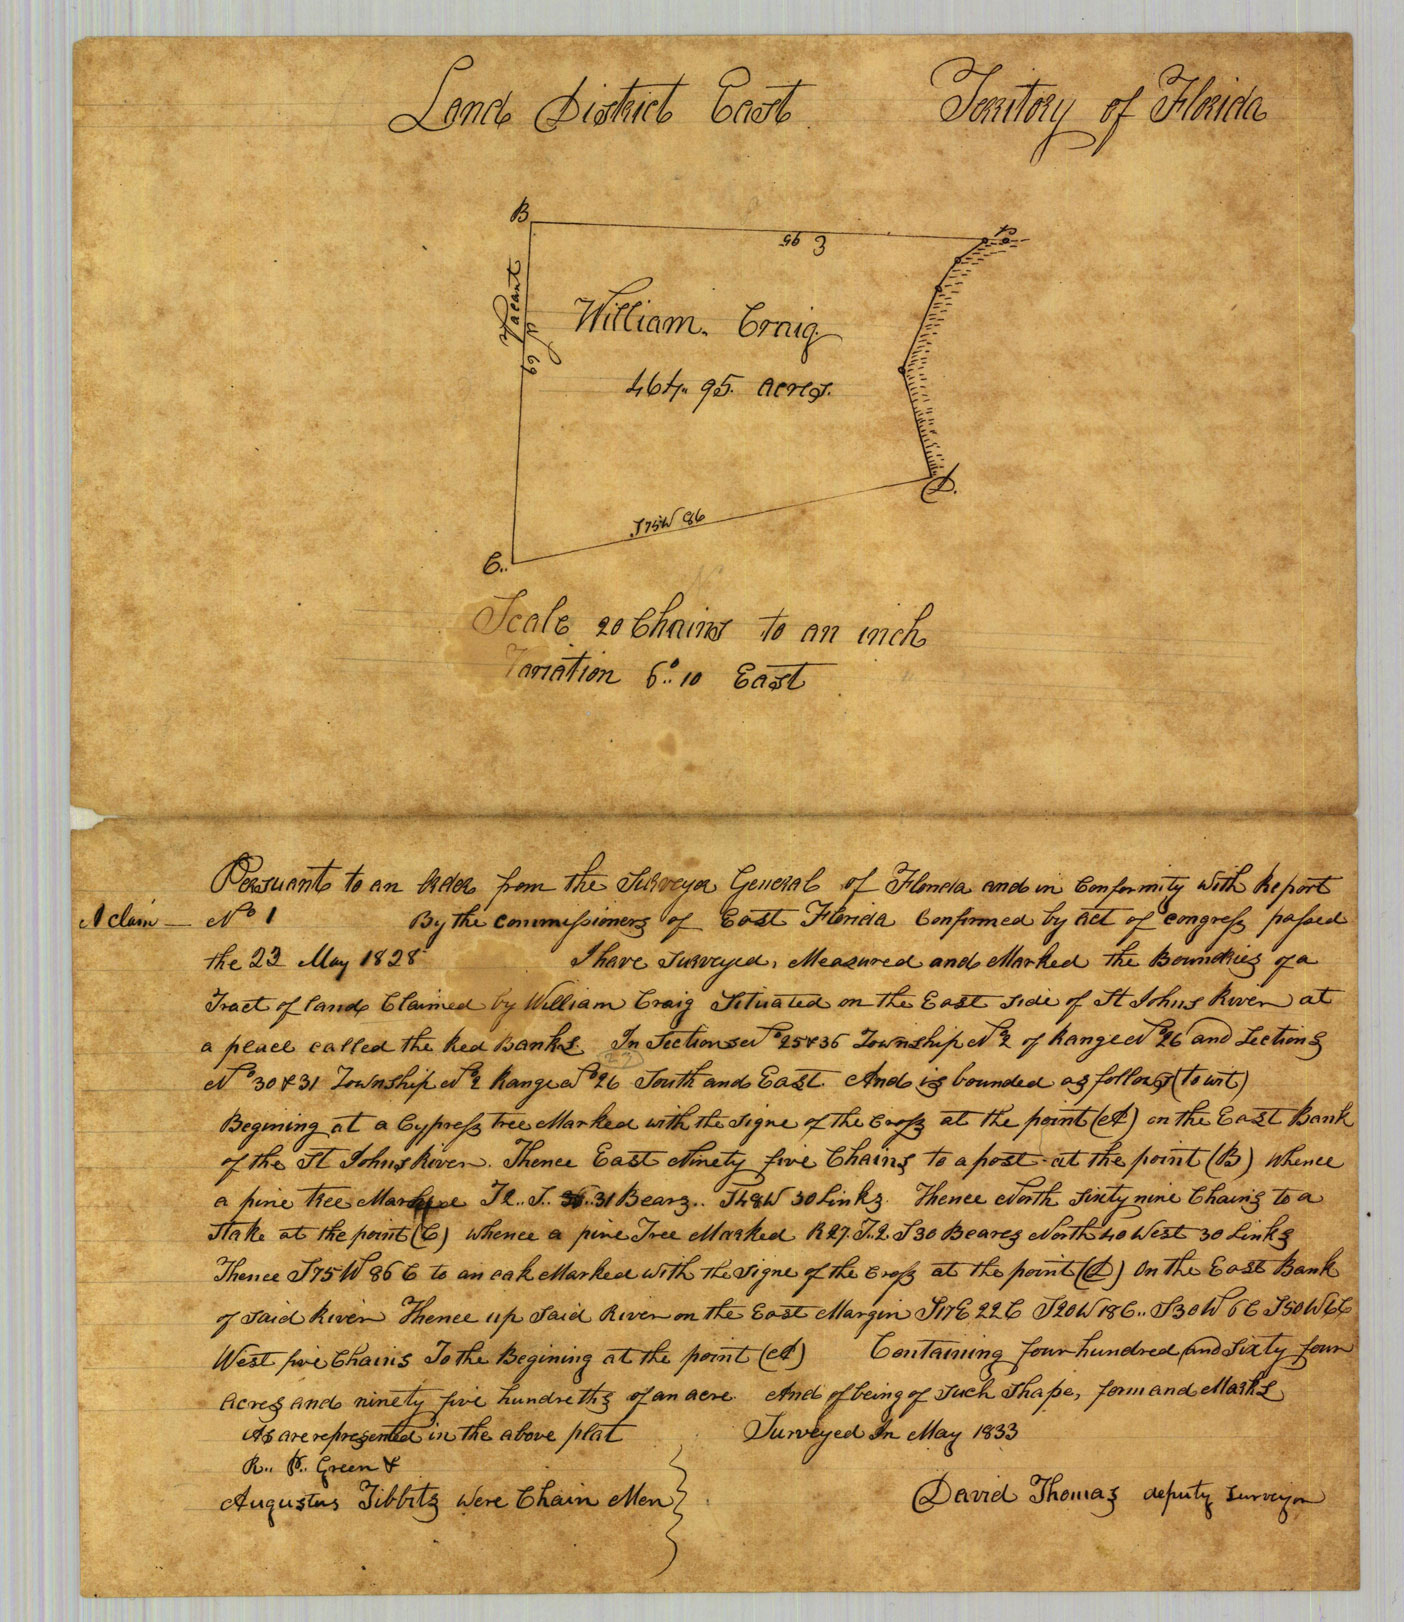 Land District East Territory of Florida
B
E 95
A
Vacant
N 69
William. Craig
464.. 95. acres.
D.
S75W 86
C..
Scale 20 Chains to an inch
Variation 6°.. 10 East
Persuant to an Order from the Surveyor General of Florida and in Conformity with Report
A claim — No 1 By the commissioners of East Florida Confirmed by act of congress passed
the 23 May 1828 I have Surveyed, Measured and Marked the Boundries of a
Tract of land Claimed by William Craig Situated on the East side of St Johns River at
a place called the Red Banks In Sections No 25 & 36 Township No 2 of Range No 26 and Sections
No 30 & 31 Township No 2 Range No 26 South and East And is bounded as follows (to wit)
Begining at a Cypress tree Marked with the signe of the Cross at the point (A) on the East Bank
of the St Johns River. Thence East Ninety five Chains to a post at the point (B) whence
a pine tree Marked T2.. S.. 31 Bears.. S48W 30 Links. Thence North Sixty nine Chains to a
Stake at the point (C) whence a pine Tree Marked R27. T..2 S30 Beares North 40 West 30 Links
Thence S75W 86 C to an oak Marked with the signe of the Cross at the point (D) On the East Bank
of said River Thence up said River on the East Margin S17E 22C S20W 18C.. S30W 6C S50W 6C
West five Chains To the Begining at the point (A) Containing four hundred and Sixty four
acres and ninety five hundreths of an acre. And of being of such shape, form and Marks
As are represented in the above plat Surveyed In May 1833
R.. P.. Green &
Augustus Tibbits were Chain Men David Thomas deputy surveyor